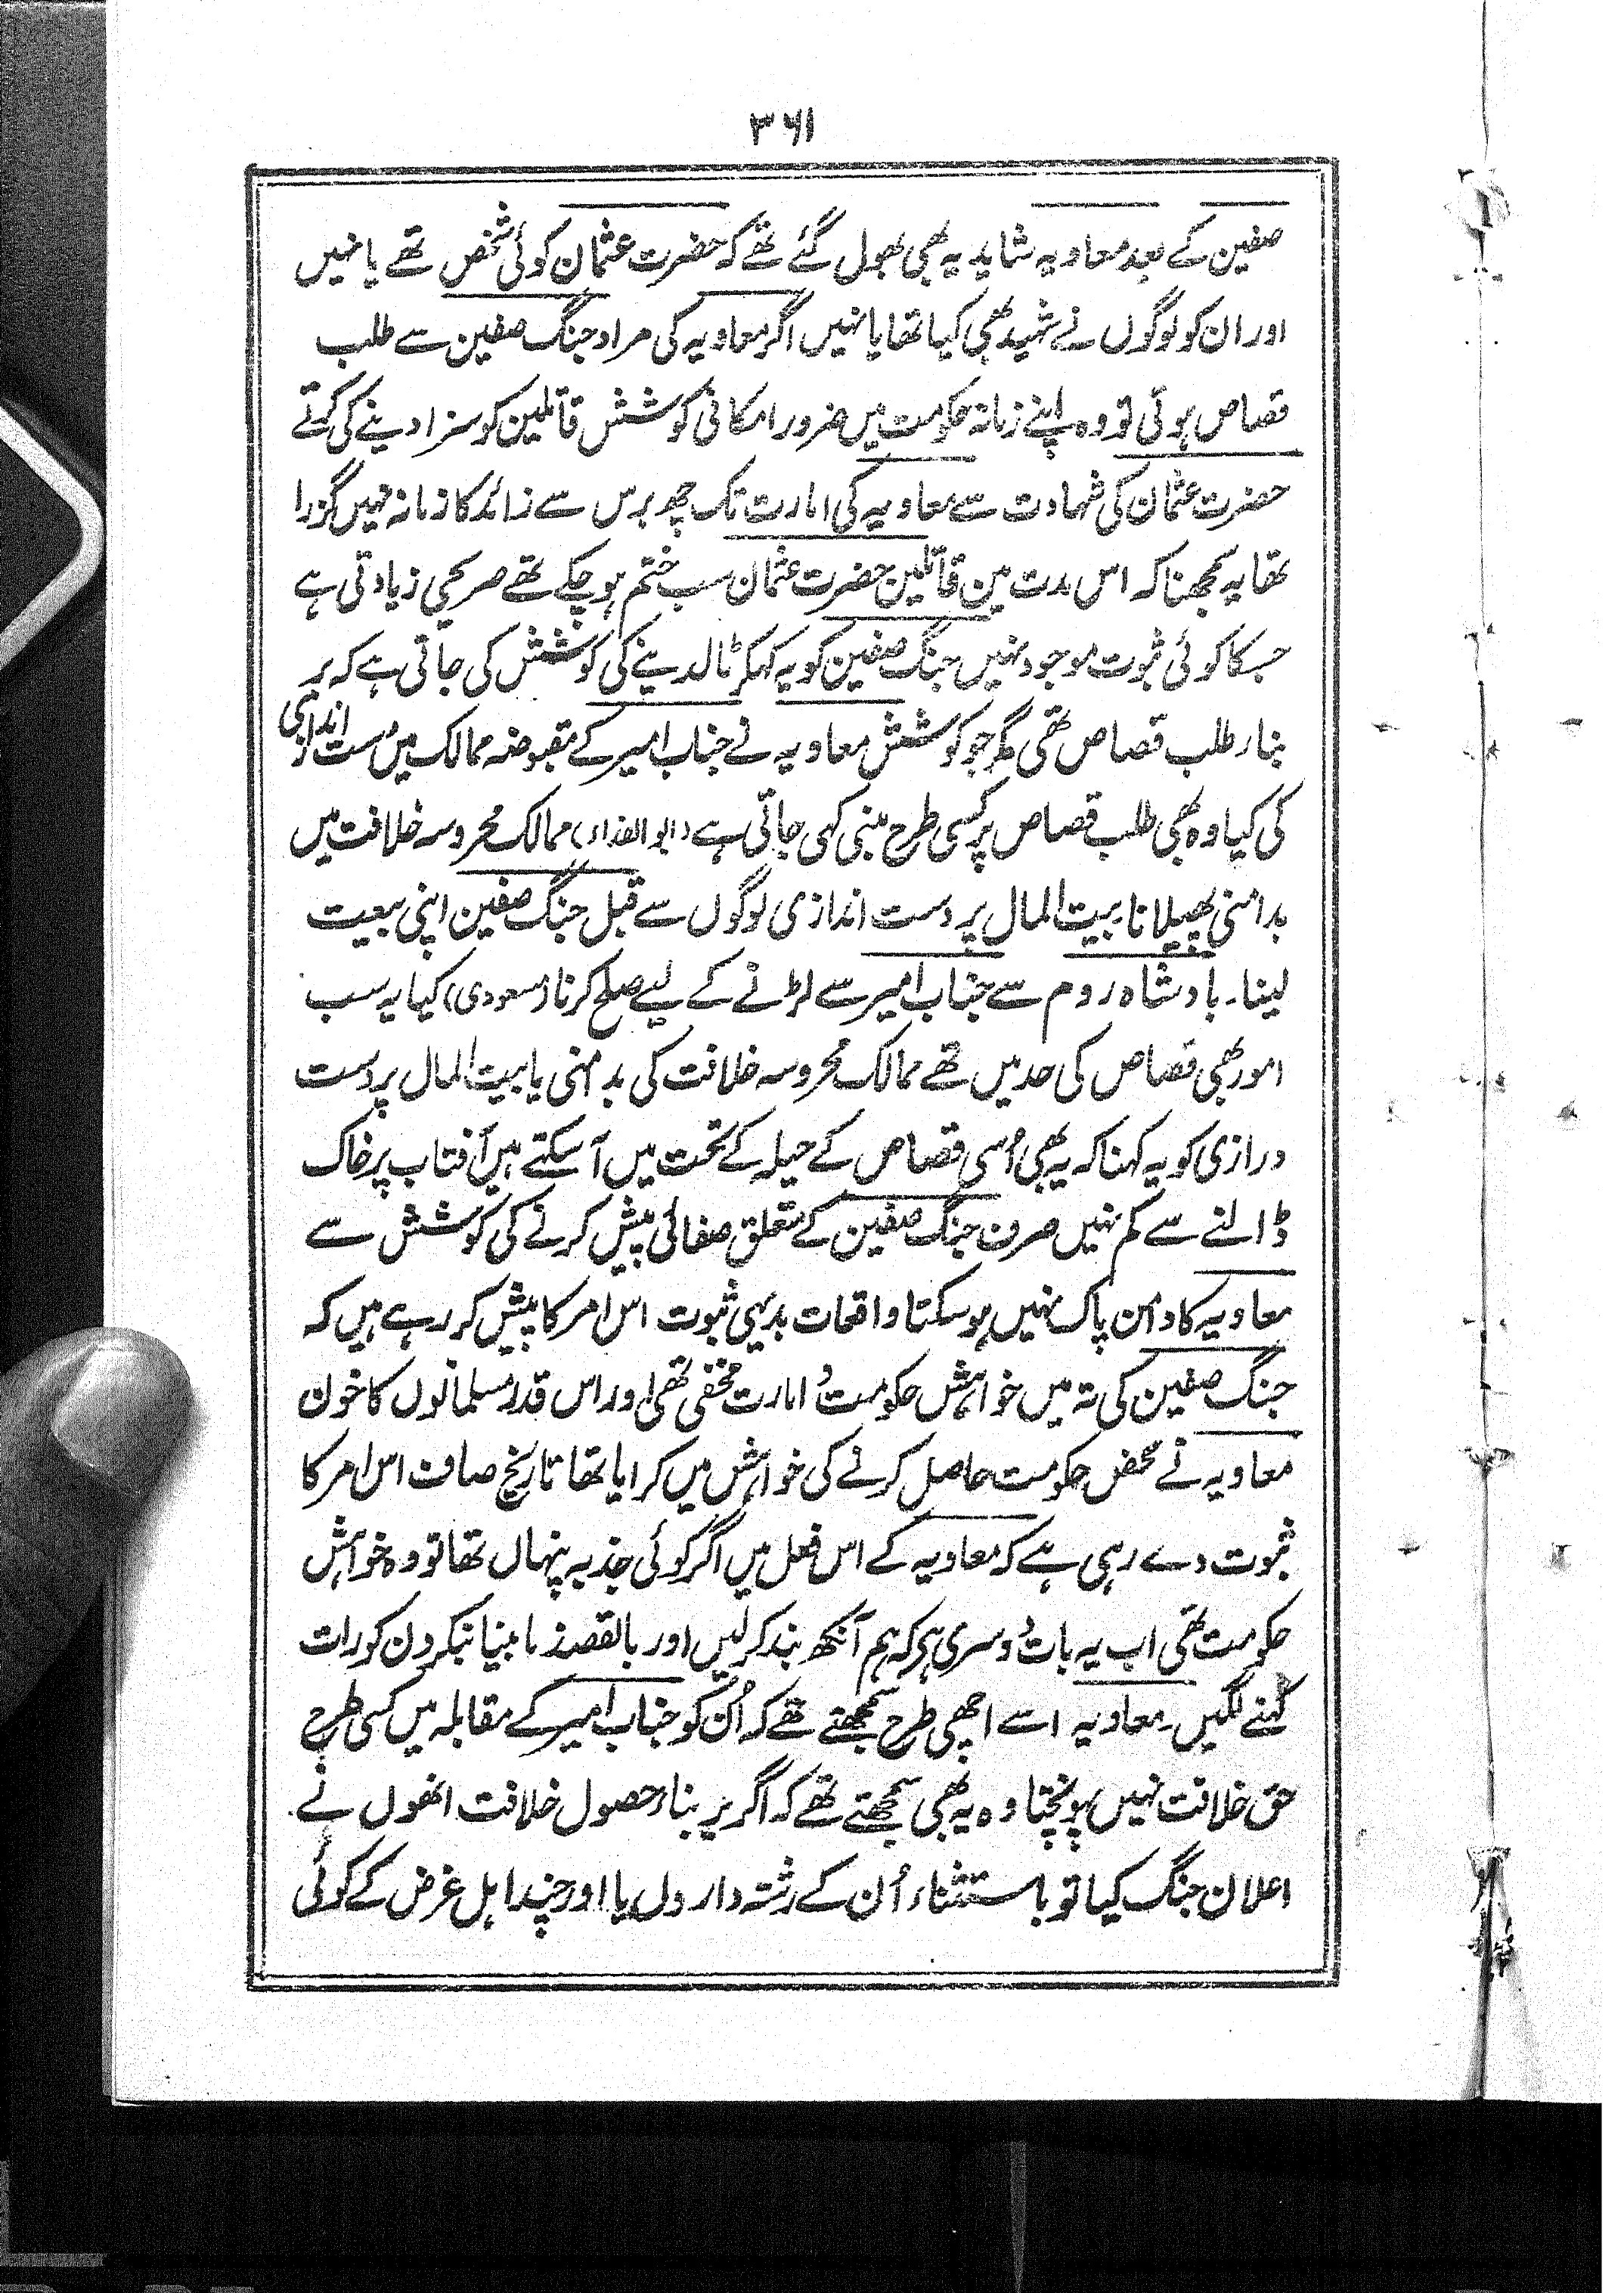 ۳۶۱
صفین کے بعد معاویہ شاید یہ بھی بھول گئے تھے کہ حضرت عثمان کوئی شخص تھے یا نہیں
اور ان کو لوگوں نے شہید بھی کیا تھا یا نہیں اگر معاویہ کی مراد جنگ صفین سے طلب
قصاص ہوتی تو وہ اپنے زمانہ حکومت میں ضرور امکانی کوشش قاتلین کو سزا دینے کی کرتے
حضرت عثمان کی شہادت سے معاویہ کی امارت تک چھ برس سے زائد کا زمانہ نہیں گزرا
تھا یہ سمجھنا کہ اس مدت مین قاتلین حضرت عثمان سب ختم ہو چکے تھے صریحی زیادتی ہے
جسکا کوئی ثبوت موجود نہیں جنگ صفین کو یہ کہکر ٹالدینے کی کوشش کی جاتی ہے کہ بر
بنار طلب قصاص تھی مگر جو کوشش معاویہ نے جناب امیر کے مقبوضہ ممالک میں دست اندازی
کی کیا وہ بھی طلب قصاص پر کسی طرح مبنی کہی جاتی ہے (ابو الفداء) ممالک محروسہ خلافت میں
بدامنی پھیلانا بیت المال پر دست اندازی لوگوں سے قبل جنگ صفین اپنی بیعت
لینا۔ بادشاہ روم سے جناب امیر سے لڑانے کے لیے صلح کرنا (مسعودی) کیا یہ سب
امور بھی قصاص کی حد میں تھے ممالک محروسہ خلافت کی بدامنی یا بیت المال پر دست
درازی کو یہ کہنا کہ یہ بھی اُسی قصاص کے حیلہ کے تحت میں آسکتے ہیں آفتاب پر خاک
ڈالنے سے کم نہیں صرف جنگ صفین کے متعلق صفائی پیش کرنے کی کوشش سے
معاویہ کا دامن پاک نہیں ہو سکتا واقعات بدیہی ثبوت اس امر کا پیش کر رہے ہیں کہ
جنگ صفین کی تہ میں خواہش حکومت و امارت مخفی تھی اور اس قدر مسلمانوں کا خون
معاویہ نے محض حکومت حاصل کرنے کی خواہش میں کرایا تھا تاریخ صاف اس امر کا
ثبوت دے رہی ہے کہ معاویہ کے اس فعل میں اگر کوئی جذبہ پنہاں تھا تو وہ خواہش
حکومت تھی اب یہ بات دوسری ہے کہ ہم آنکھ بند کرلیں اور بالقصد نابینا بنکر دن کو رات
کہنے لگیں۔ معاویہ اسے اچھی طرح سمجھتے تھے کہ اُن کو جناب امیر کے مقابلہ میں کسی طرح
حق خلافت نہیں پہونچتا وہ یہ بھی سمجھتے تھے کہ اگر بر بناء حصول خلافت انھوں نے
اعلان جنگ کیا تو باستثناء اُن کے رشتہ دار دل یا اور چند اہل غرض کے کوئی